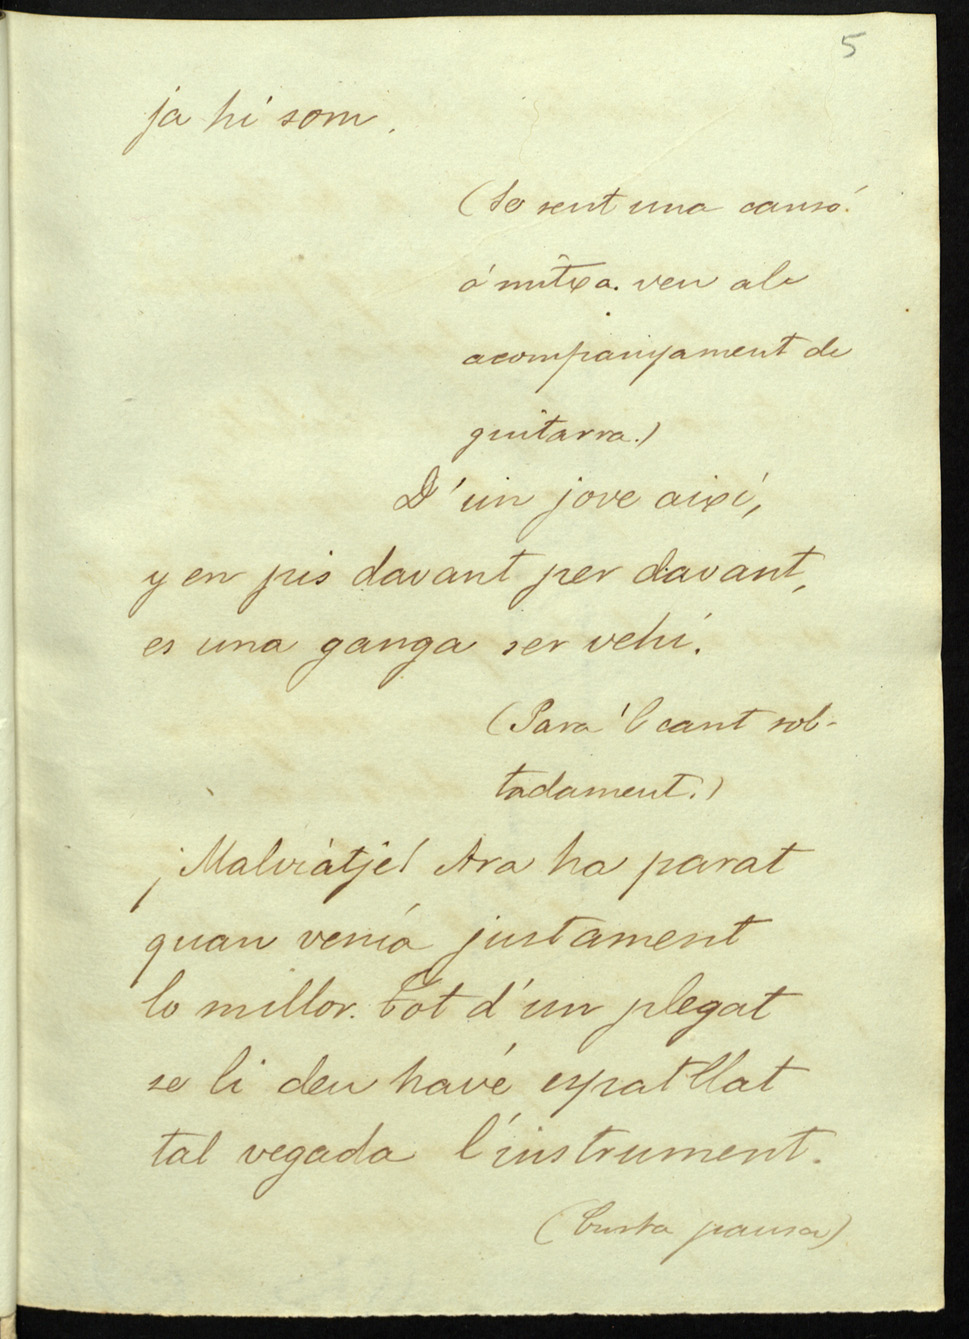 5
ja hi som.
(Se sent una cansó
á mitxa veu ab
acompanyament de
guitarra.)
D'un jove aixi,
y en pis davant per davant,
es una ganga ser vehí.
(Para 'l cant sob-
tadament.)
¡Malviatje! Ara ha parat
quan venía justament
lo millor. Tot d'un plegat
se li deu havé espatllat
tal vegada l'instrument.
(Curta pausa)